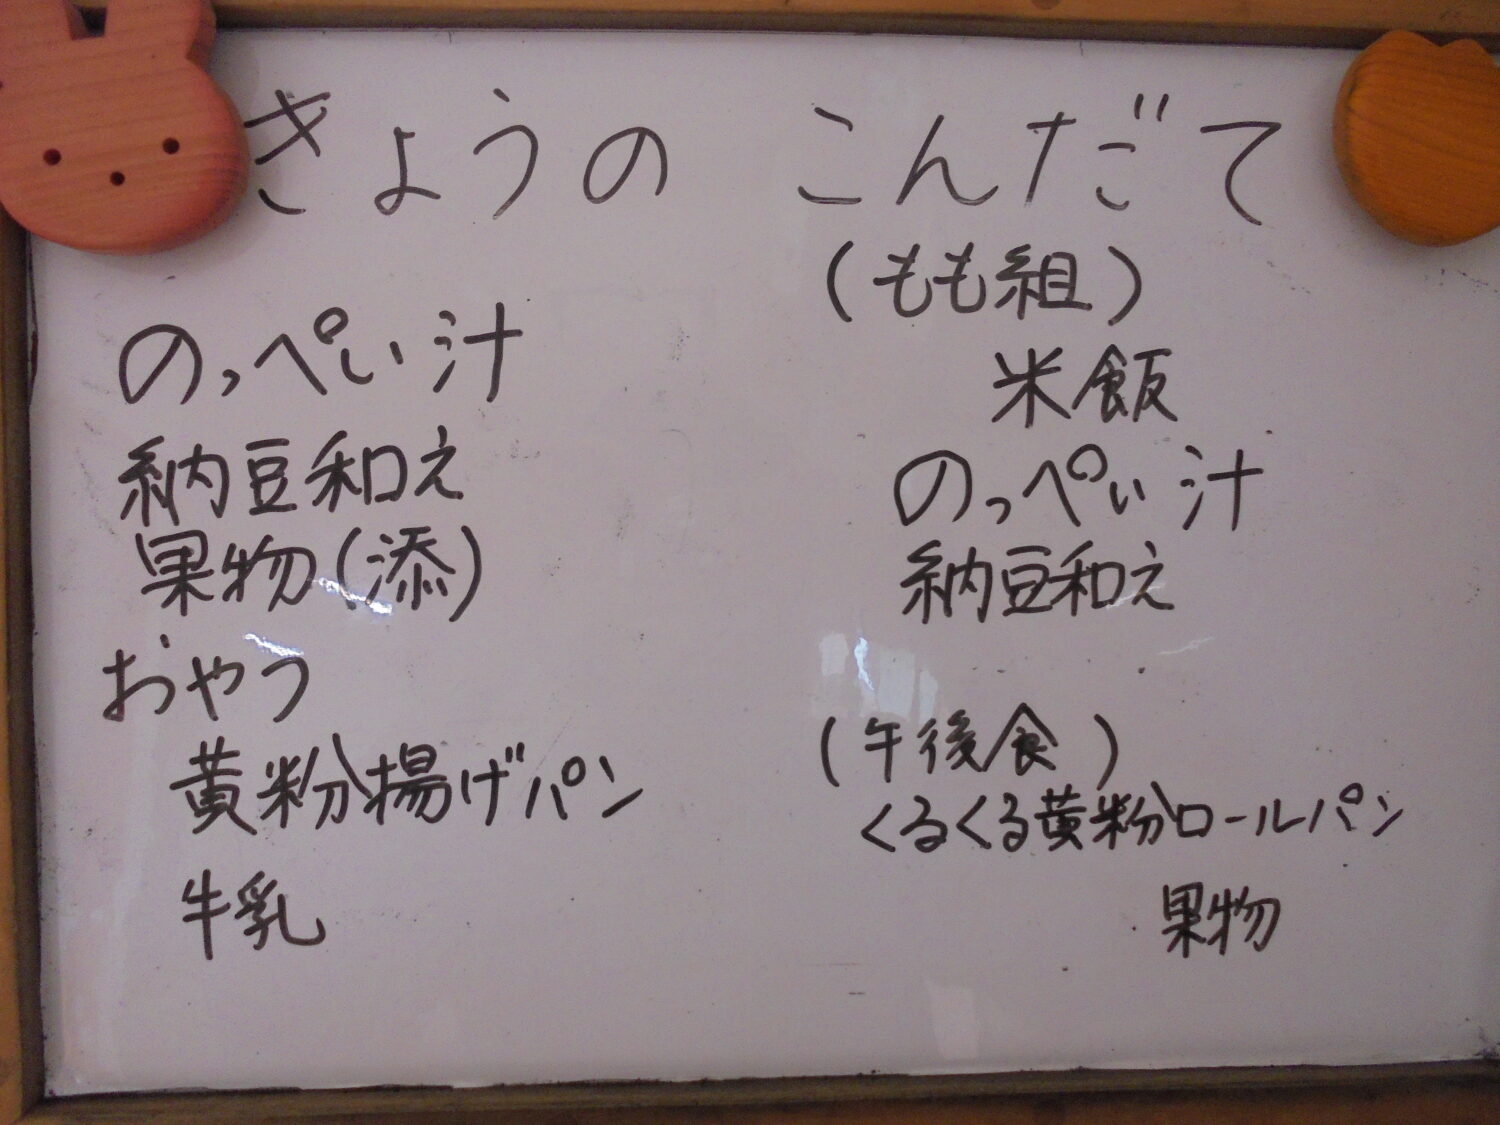 きょうの こんだて
のっぺい汁
納豆和え
果物(添)
おやつ
黄粉揚げパン
牛乳
(もも組)
米飯
のっぺい汁
納豆和え
(午後食)
くるくる黄粉ロールパン
果物